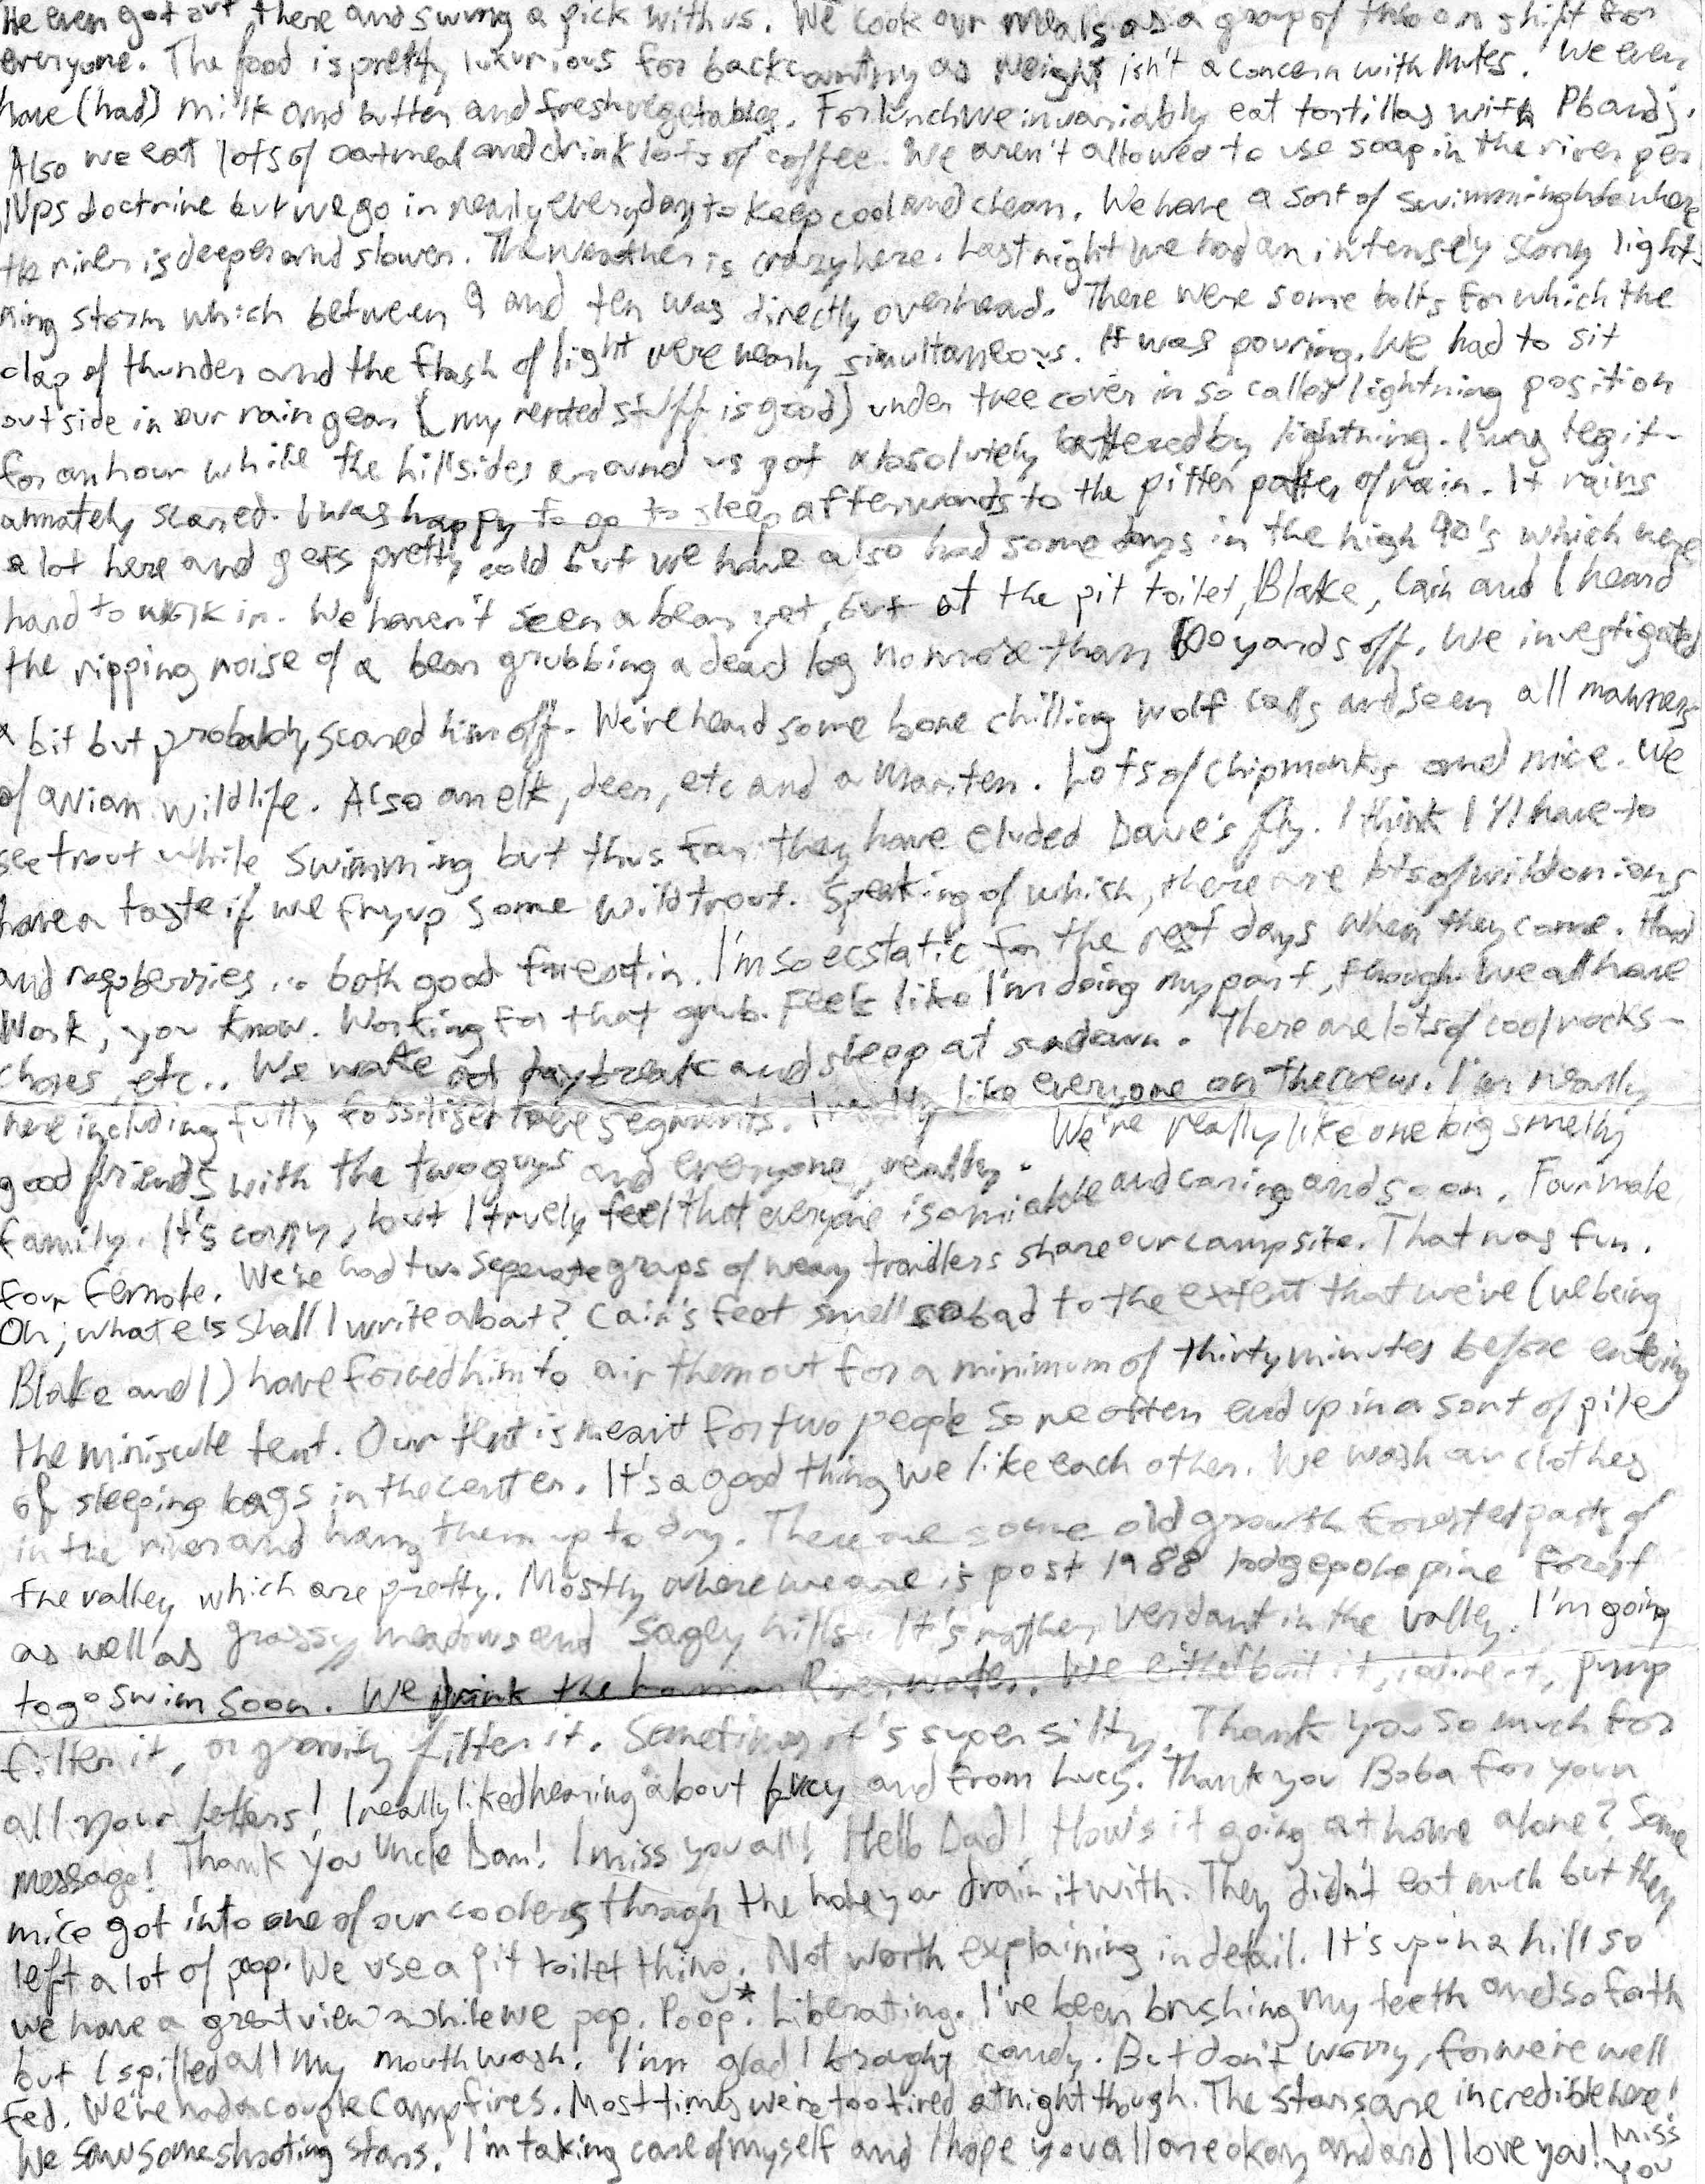 He even got out there and swung a pick with us. We cook our meals as a group of two on shift for
everyone. The food is pretty luxurious for backcountry as weight isn't a concern with Mules. We even
have (had) milk and butter and fresh vegetables. For lunch we invariably eat tortillas with Pb and j.
Also we eat lots of oatmeal and drink lots of coffee. We aren't allowed to use soap in the river per
Nps doctrine but we go in nearly everyday to keep cool and clean. We have a sort of swimminghole where
the river is deeper and slower. The weather is crazy here. Last night we had an intensely scary light-
ning storm which between 9 and ten was directly overhead. There were some bolts for which the
clap of thunder and the flash of light were nearly simultaneous. It was pouring. We had to sit
outside in our rain gear (my rented stuff is good) under tree cover in so called lightning position
for an hour while the hillsides around us got absolutely battered by lightning. I was legit-
amately scared. I was happy to go to sleep afterwards to the pitter patter of rain. It rains
a lot here and gets pretty cold but we have also had some days in the high 90's which were
hard to work in. We haven't seen a bear yet, but at the pit toilet, Blake, Cain and I heard
the ripping noise of a bear grubbing a dead log no more than 100 yards off. We investigated
a bit but probably scared him off. We've heard some bone chilling wolf calls and seen all manners
of avian wildlife. Also an elk, deer, etc and a Marten. Lots of chipmunks and mice. We
see trout while swimming but thus far they have eluded Dave's fly. I think I'll have to
have a taste if we fry up some wild trout. Speaking of which, there are lots of wild onions
and raspberries ... both good I'm so ecstatic for the rest days when they come. Hard
Work, you know. Working for that grub. Feels like I'm doing my part, though. We all have
chores, etc.. We wake at daybreak and sleep at sundown. There are lots of cool rocks-
here including fully fossilised tree segments. I really like everyone on the crew. I'm really
good friends with the two guys and everyone, really. We're really like one big smelly
family. It's corny, but I truely feel that everyone is amiable and caring and so on. Four male,
four female. We've had two seperate groups of weary trailers share our campsite. That was fun.
Oh, what els shall I write about? Cain's feet smell so bad to the extent that we've (we being
Blake and I) have forced him to air them out for a minimum of thirty minutes before entering
the miniscule tent. Our tent is meant for two people so we often end up in a sort of pile
of sleeping bags in the center. It's a good thing we like each other. We wash our clothes
in the river and hang them up to dry. There are some old growth forested parts of
the valley which are pretty. Mostly where we are is post 1988 lodgepole pine forest
as well as grassy meadows and sagey hills. It's rather verdant in the valley. I'm going
to go swim soon. We drink the Lamar River water. We either boil it, iodine it, pump
filter it, or gravity filter it. Sometimes it's super silty. Thank you so much for
all your letters! I really liked hearing about Lucy and from Lucy. Thank you Baba for your
message! Thank you Uncle Dan! I miss you all! Hello Dad! How's it going at home alone? Some
mice got into one of our coolers through the hole you drain it with. They didn't eat much but they
left a lot of poop. We use a pit toilet thing. Not worth explaining in detail. It's up on a hill so
we have a great view while we pop. Poop*. Liberating. I've been brushing my teeth and so forth
but I spilled all my mouthwash. I'm glad I brought candy. But don't worry, for we're well
fed. We've had a couple campfires. Most times we're too tired at night though. The stars are incredible here!
We saw some shooting stars. I'm taking care of myself and I hope you all are okay and and I love you! Miss
you